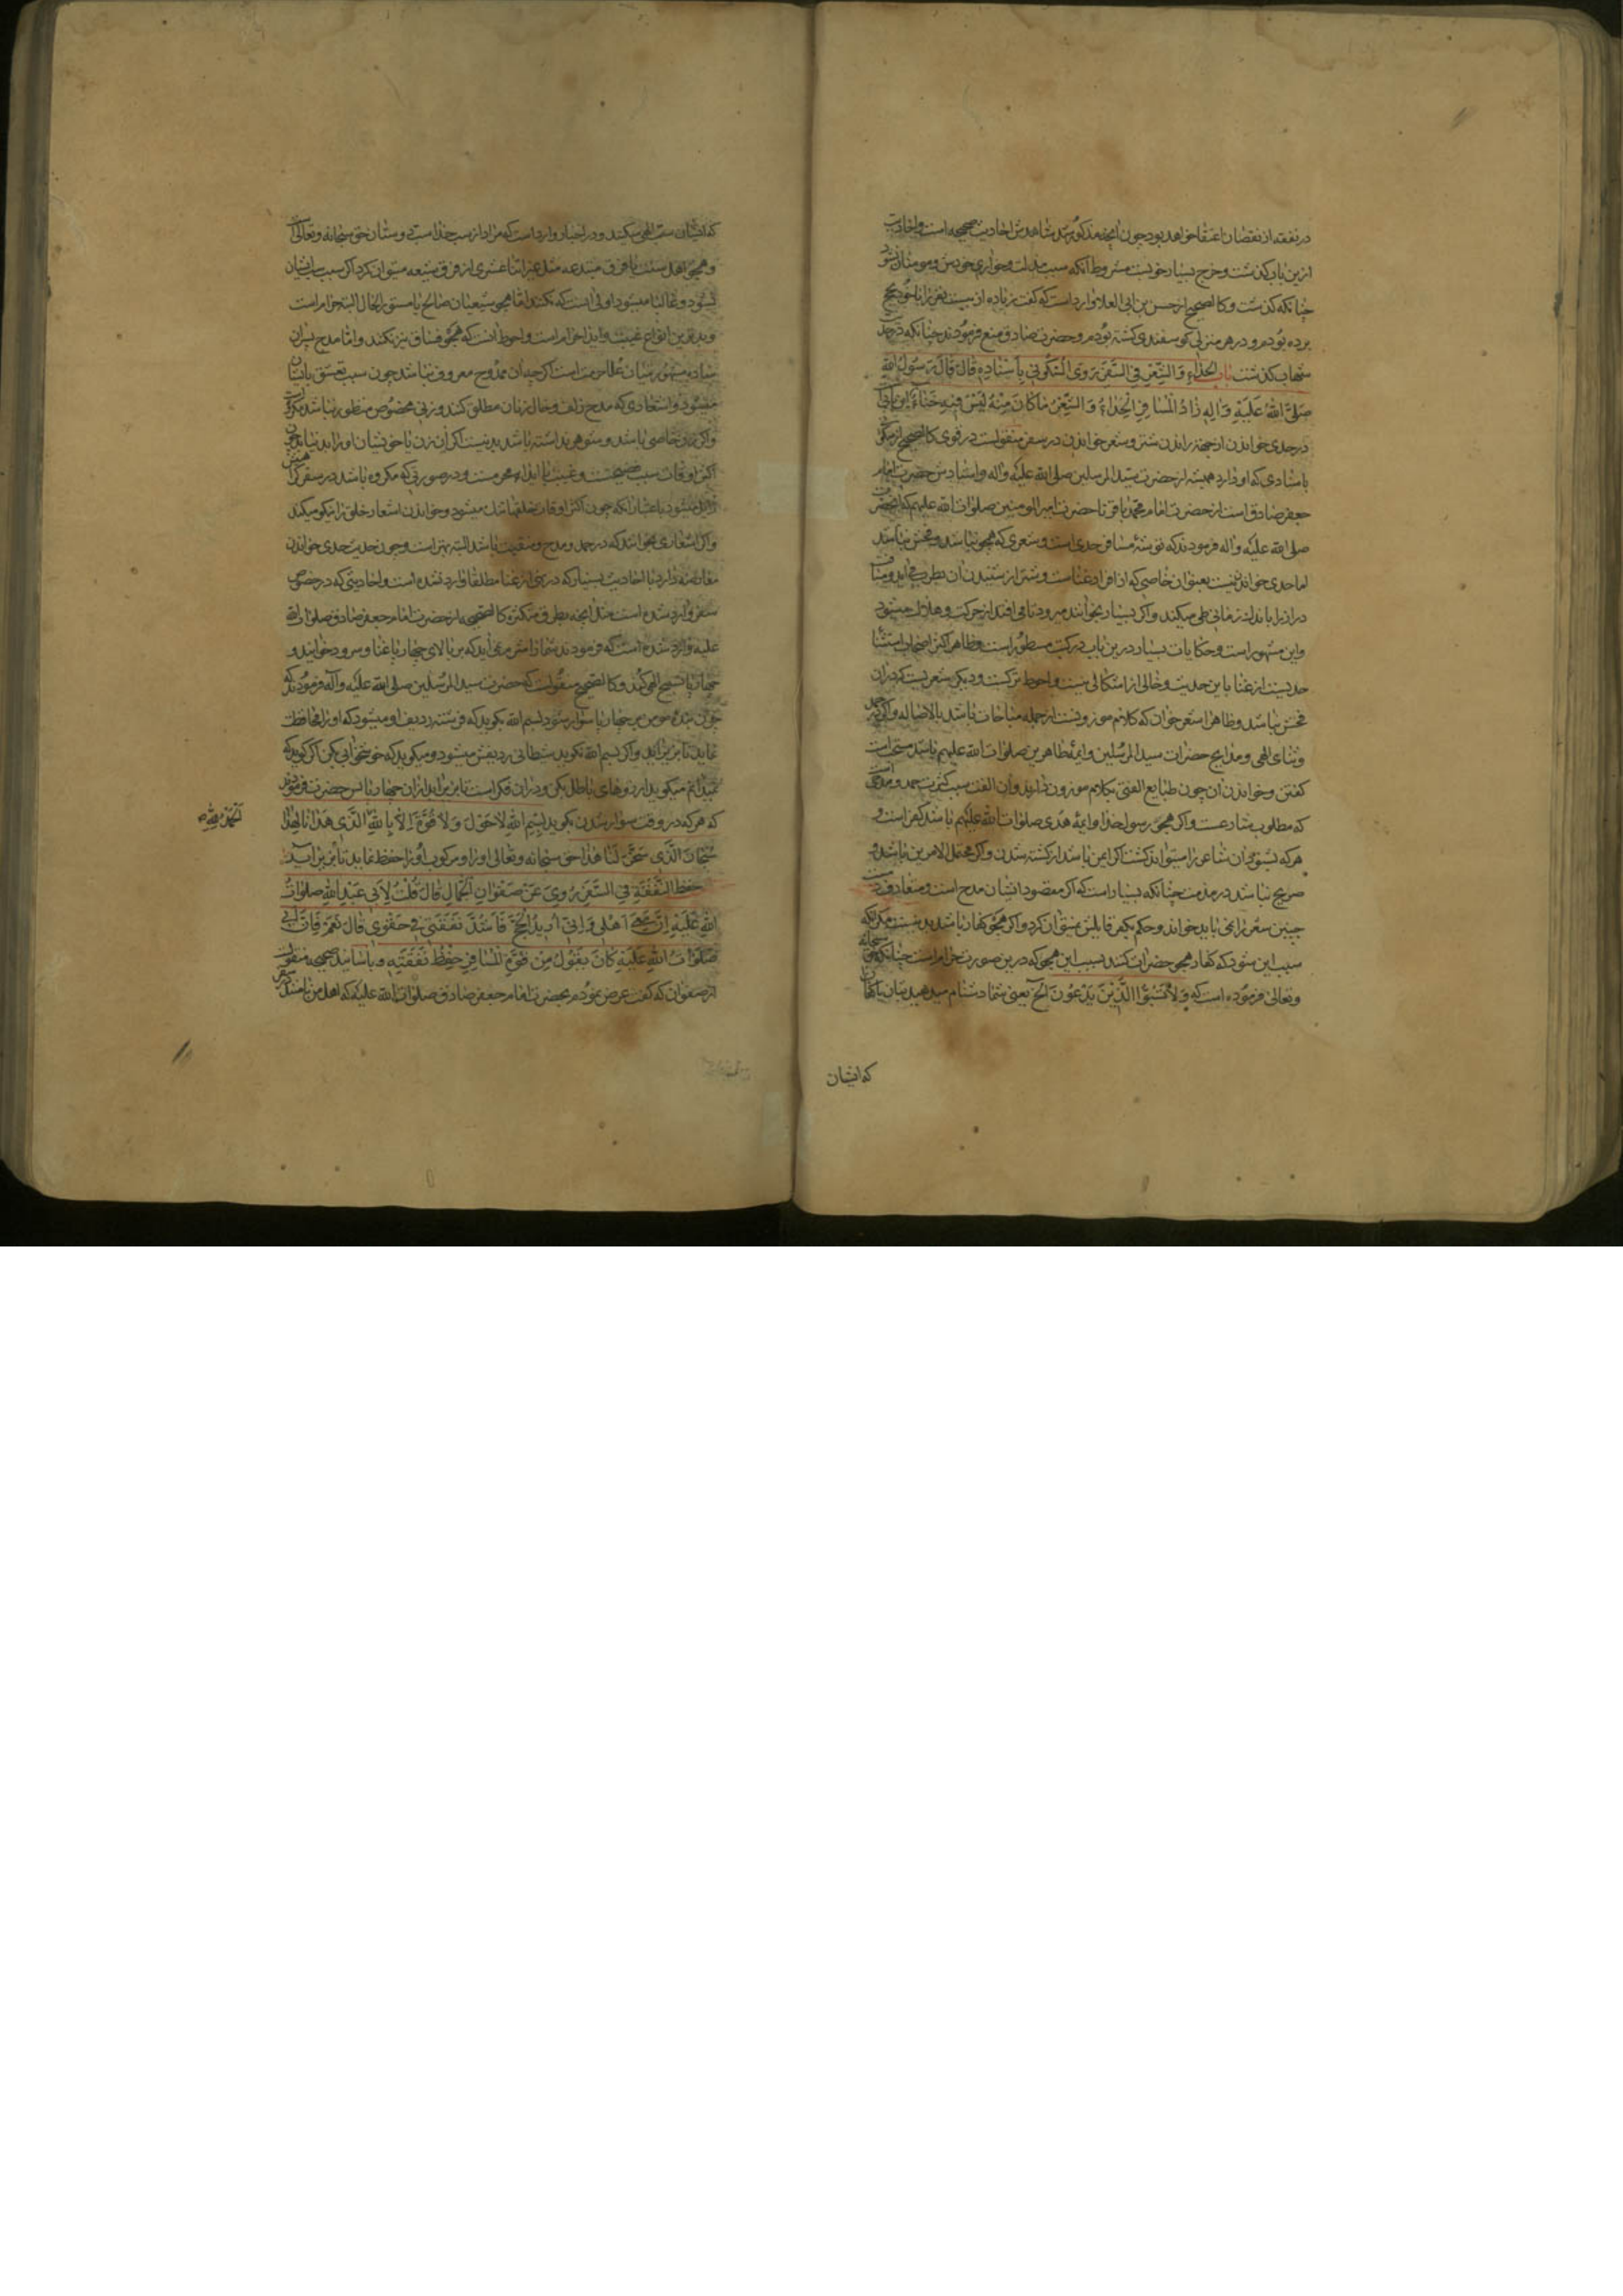 در نفقه از نقصان اعتقاد خواهد بود چون آنچه مذکور شد شاهدش احادیث صحیحه است و احادیث
ازین باب گذشت و خرج بسیار خوبست مشروط آنکه سبب مذلت و خواری خویش و مومنان نشود
چنانکه گذشت و کالصحیح از حسین بن ابی العلا وارد است که گفت زیاده از بیست نفر را با خود بحج
برده بودم و در هر منزلی گوسفندی کشته بودم و حضرت صادق منع فرمودند چنانکه در حدیث
شهاب گذشت باب الحداء و الشعر فی السفر روی السکونی باسناده قال قال رسول الله
صلی الله علیه و اله زاد المسافر الحداء و الشعر ما کان منه لیس فیه خناء این بابی
در حدی خواندن از جهة راندن شتر و شعر خواندن در سفر منقولست در قوی کالصحیح از سکونی
باسنادی که او دارد همیشه از حضرت سید المرسلین صلی الله علیه و اله و اسنادش حضرت امام
جعفر صادق است از حضرت امام محمد باقر تا حضرت امیر المومنین صلوات الله علیهم که آنحضرت
صلی الله علیه و اله فرمودند که توشهٔ مسافر حدی است و شعری که هجو نباشد و فحش نباشد
اما حدی خواندنیست بعنوان خاصی که از افراد غناست و شتر از شنیدن آن بطرب می آید و مسافت
دراز را باندک زمانی طی میکند و اگر بسیار بخوانند میرود تا می افتد از حرکت و هلاک میشود
و این مشهور است و حکایات بسیار درین باب در کتب مسطور است و ظاهر اکثر اصحاب استثنا
حدیست از غنا باین حدیث و خالی از اشکالی نیست و احوط ترکست و دیگر شعریست که در ان
فحش نباشد و ظاهرا شعر خوان که کلام موزونست از جمله مباحات باشد بالاصاله و اگر در حمد
و ثنای الهی و مدایح حضرات سید المرسلین و ایمهٔ طاهرین صلوات الله علیهم باشد مستحب است
گفتن و خواندن آن چون طبایع الفتی بکلام موزون دارند و آن الفت سبب کثرت حمد و مدحی است
که مطلوب شارعست و اگر هجو رسول خدا و ایمهٔ هدی صلوات الله علیهم باشد کفر است و
هر که بشنود آن شاعر را میتواند کشت اگر ایمن باشد از کشته شدن و اگر محتمل الامرین باشد و
صریح نباشد در مذمت چنانکه بسیار است که اگر مقصود ایشان مدح است و متعارف نیست
چنین شعر را نمی باید خواند و حکم بکفر قایلش نمیتوان کرد و اگر هجو کفار باشد بد نیست مگر آنکه
سبب این شود که کفار هجو حضرات کنند بسبب این هجو که درین صورت حرام است چنانکه حق سبحانه
و تعالی فرموده است که و لا تسبوا الذین یدعون الخ یعنی شما دشنام مدهید بتان یا کفار را
که ایشان
که ایشان سب الهی میکنند و در اخبار وارد است که مراد از سب خدا سب دوستان حق سبحانه و تعالی است
و هجو اهل سنت یا فرق مبتدعه مثل غیر اثنا عشری از فرق شیعه میتوان کرد اگر سبب سب ایشان
نشود و غالبا میشود اولی است که نکنند اما هجو شیعیان صالح یا مستور الحال البته حرام است
و بدترین انواع غیبت و ایذا حرام است و احوط آنست که هجو فساق نیز نکنند و اما مدح پسران
ساده مشهور میان علما حرمت است اگر چه آن ممدوح معروف نباشد چون سبب تعشق بایشان
میشود و اشعاری که مدح زلف و خال زنان مطلق کنند و زنی مخصوص منظور نباشد مکروه است
و اگر زن خاصی باشد و شوهر نداشته باشد بد نیست اگر آن زن یا خویشان او را بد نیاید چون
اکثر اوقات سبب فضیحت و غیبت یا ایذا محرمست و در صورتی که مکروه باشد در سفر کراهتش
زایل میشود باعتبار آنکه چون اکثر اوقات خلقها تنک میشود و خواندن اشعار خلق را نیکو میکند
و اگر اشعاری بخوانند که در حمد و مدح و منقبت باشد البته بهتر است و چون حدیث حدی خواندن
معارضه دارد با احادیث بسیار که در نهی از غنا مطلقا وارد شده است و احادیثی که در خصوص
سفر وارد شده است مثل آنچه بطرق متکثره کالصحیحه از حضرت امام جعفر صادق صلوات الله
علیه وارد شده است که فرمودند شما را شرم نمی آید که بر بالای چهارپا غنا و سرود خوانید و
چهارپا تسبیح الهی کند و کالصحیح منقولست که حضرت سید المرسلین صلی الله علیه و آله فرمودند که
چون بندهٔ مومن بر چهارپا سوار شود بسم الله بگوید که فرشته ردیف او میشود که او را محافظت
نماید تا بزیر آید و اگر بسم الله نگوید شیطانی ردیفش میشود و میگوید که خوش خوانی بکن اگر گوید که
نمیدانم میگوید آرزوهای باطل بکن و در آن فکر است تا بزیر آید از آن چهارپا پس حضرت فرمودند
که هر که در وقت سوار شدن بگوید بسم الله لا حول و لا قوة الا بالله الذی هدانا لهذا
الحمد لله صح
سبحان الذی سخر لنا هذا حق سبحانه و تعالی او را و مرکوب او را حفظ نماید تا بزیر آید
حفظ النفقة فی السفر روی عن صفوان الجمال قال قلت لابی عبد الله صلوات
الله علیه ان معی اهلی و انی ارید الحج فاشد نفقتی فی حقوی قال نعم فان ابی
صلوات الله علیه کان یقول من قوة المسافر حفظ نفقته و باسانید صحیحه منقولست
از صفوان که گفت عرض نمودم بحضرت امام جعفر صادق صلوات الله علیه که اهل من با منند